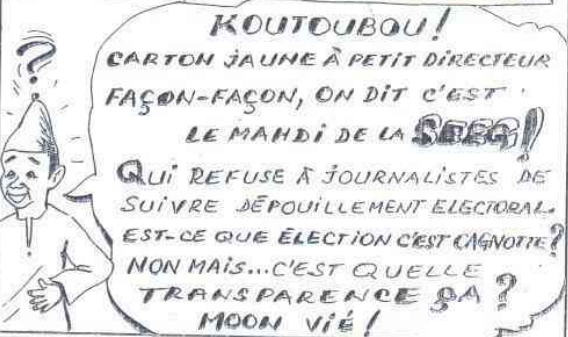 ?
KOUTOUBOU!
CARTON JAUNE À PETIT DIRECTEUR
FAÇON-FAÇON, ON DIT C'EST
LE MAHDI DE LA SEEG!
QUI REFUSE À JOURNALISTES DE
SUIVRE DÉPOUILLEMENT ELECTORAL.
EST-CE QUE ÉLECTION C'EST CAGNOTTE?
NON MAIS...C'EST QUELLE
TRANSPARENCE ÇA?
MOON VIÉ!